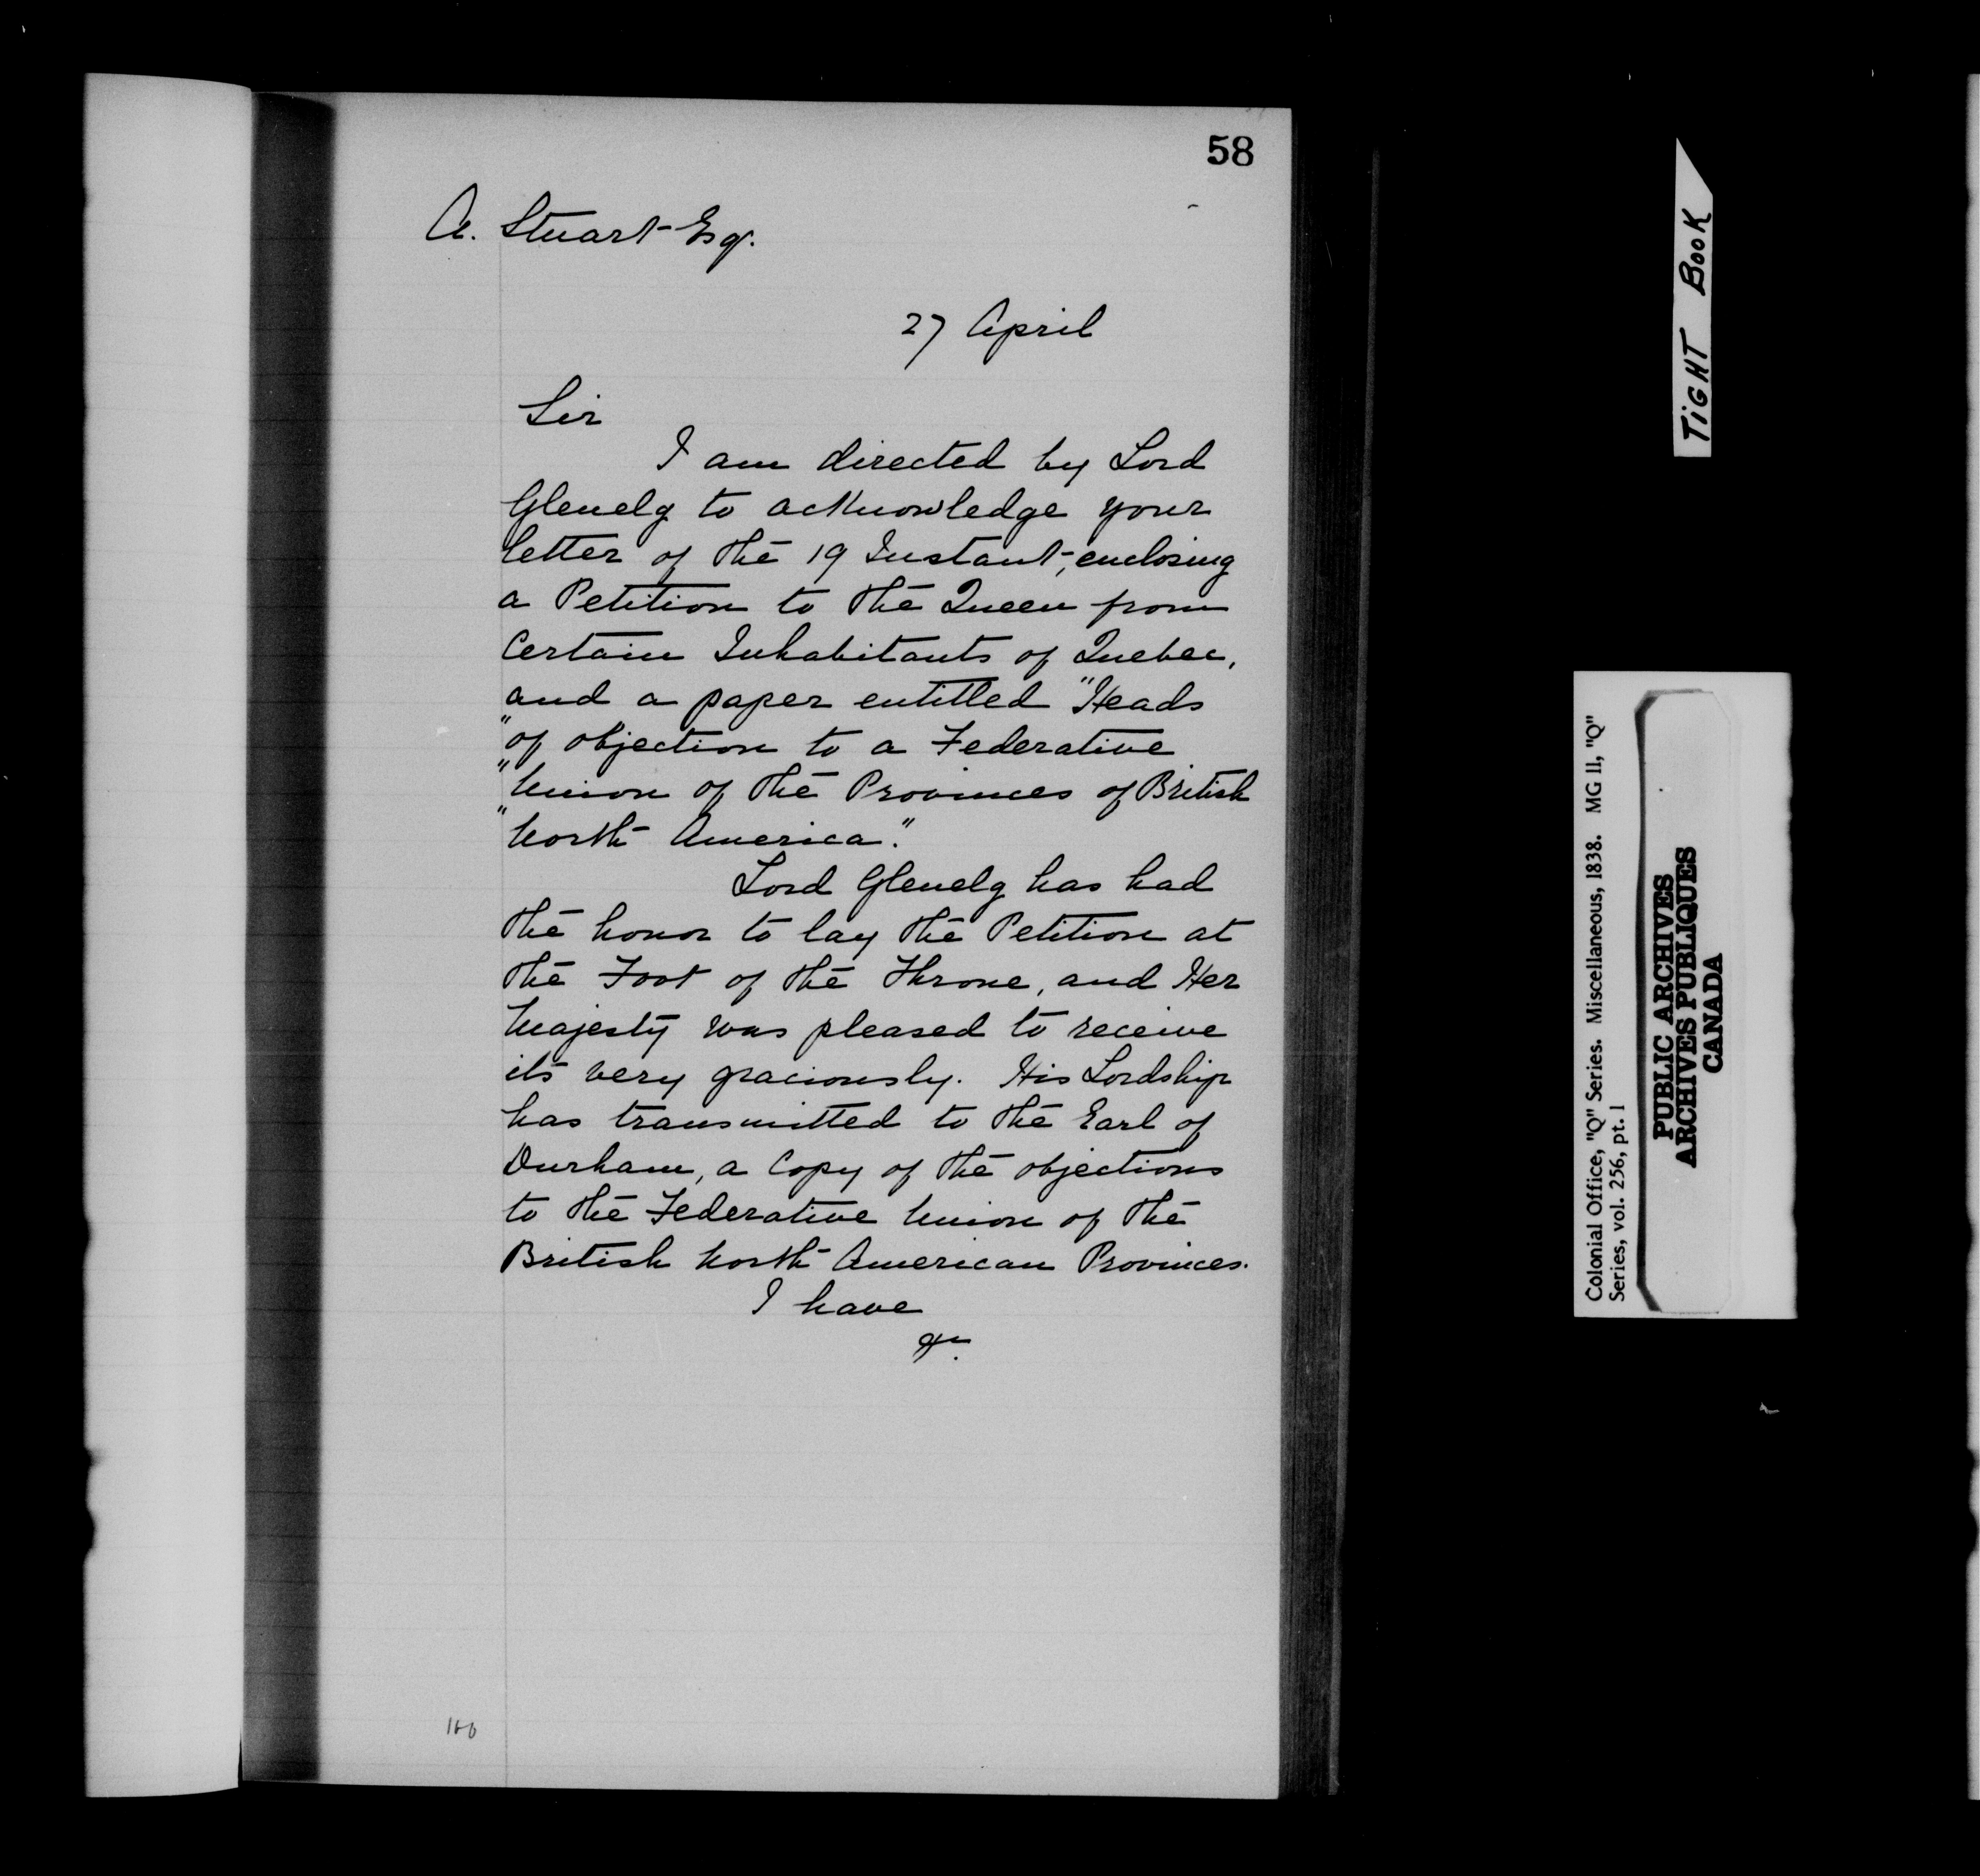 58
A. Stuart Esqr.
27 April
Sir
I am directed by Lord
Glenelg to acknowledge your
letter of the 19 Instant, enclosing
a Petition to the Queen from
Certain Inhabitants of Quebec,
and a paper entitled "Heads
"of objection to a Federative
"Union of the Provinces of British
"North America."
Lord Glenelg has had
the honor to lay the Petition at
the Foot of the Throne, and Her
Majesty was pleased to receive
it very graciously. His Lordship
has transmitted to the Earl of
Durham, a Copy of the objections
to the Federative Union of the
British North American Provinces.
I have
&c.
TIGHT BOOK
Colonial Office, "Q" Series. Miscellaneous, 1838. MG 11, "Q"
Series, vol. 256, pt. 1
PUBLIC ARCHIVES
ARCHIVES PUBLIQUES
CANADA